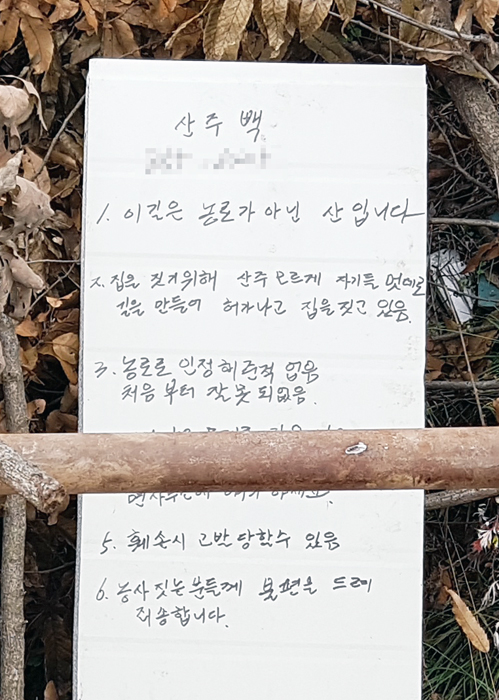 산주백
1. 이길은 농로가 아닌 산입니다
2. 집을 짓기위해 산주 모르게 자기들 멋대로
길을 만들어 허가나고 집을 짓고 있음.
3. 농로로 인정해준적 없음
처음부터 잘못되었음.
5. 훼손시 고발 당할수 있음
6. 농사 짓는분들께 불편을 드려
죄송합니다.